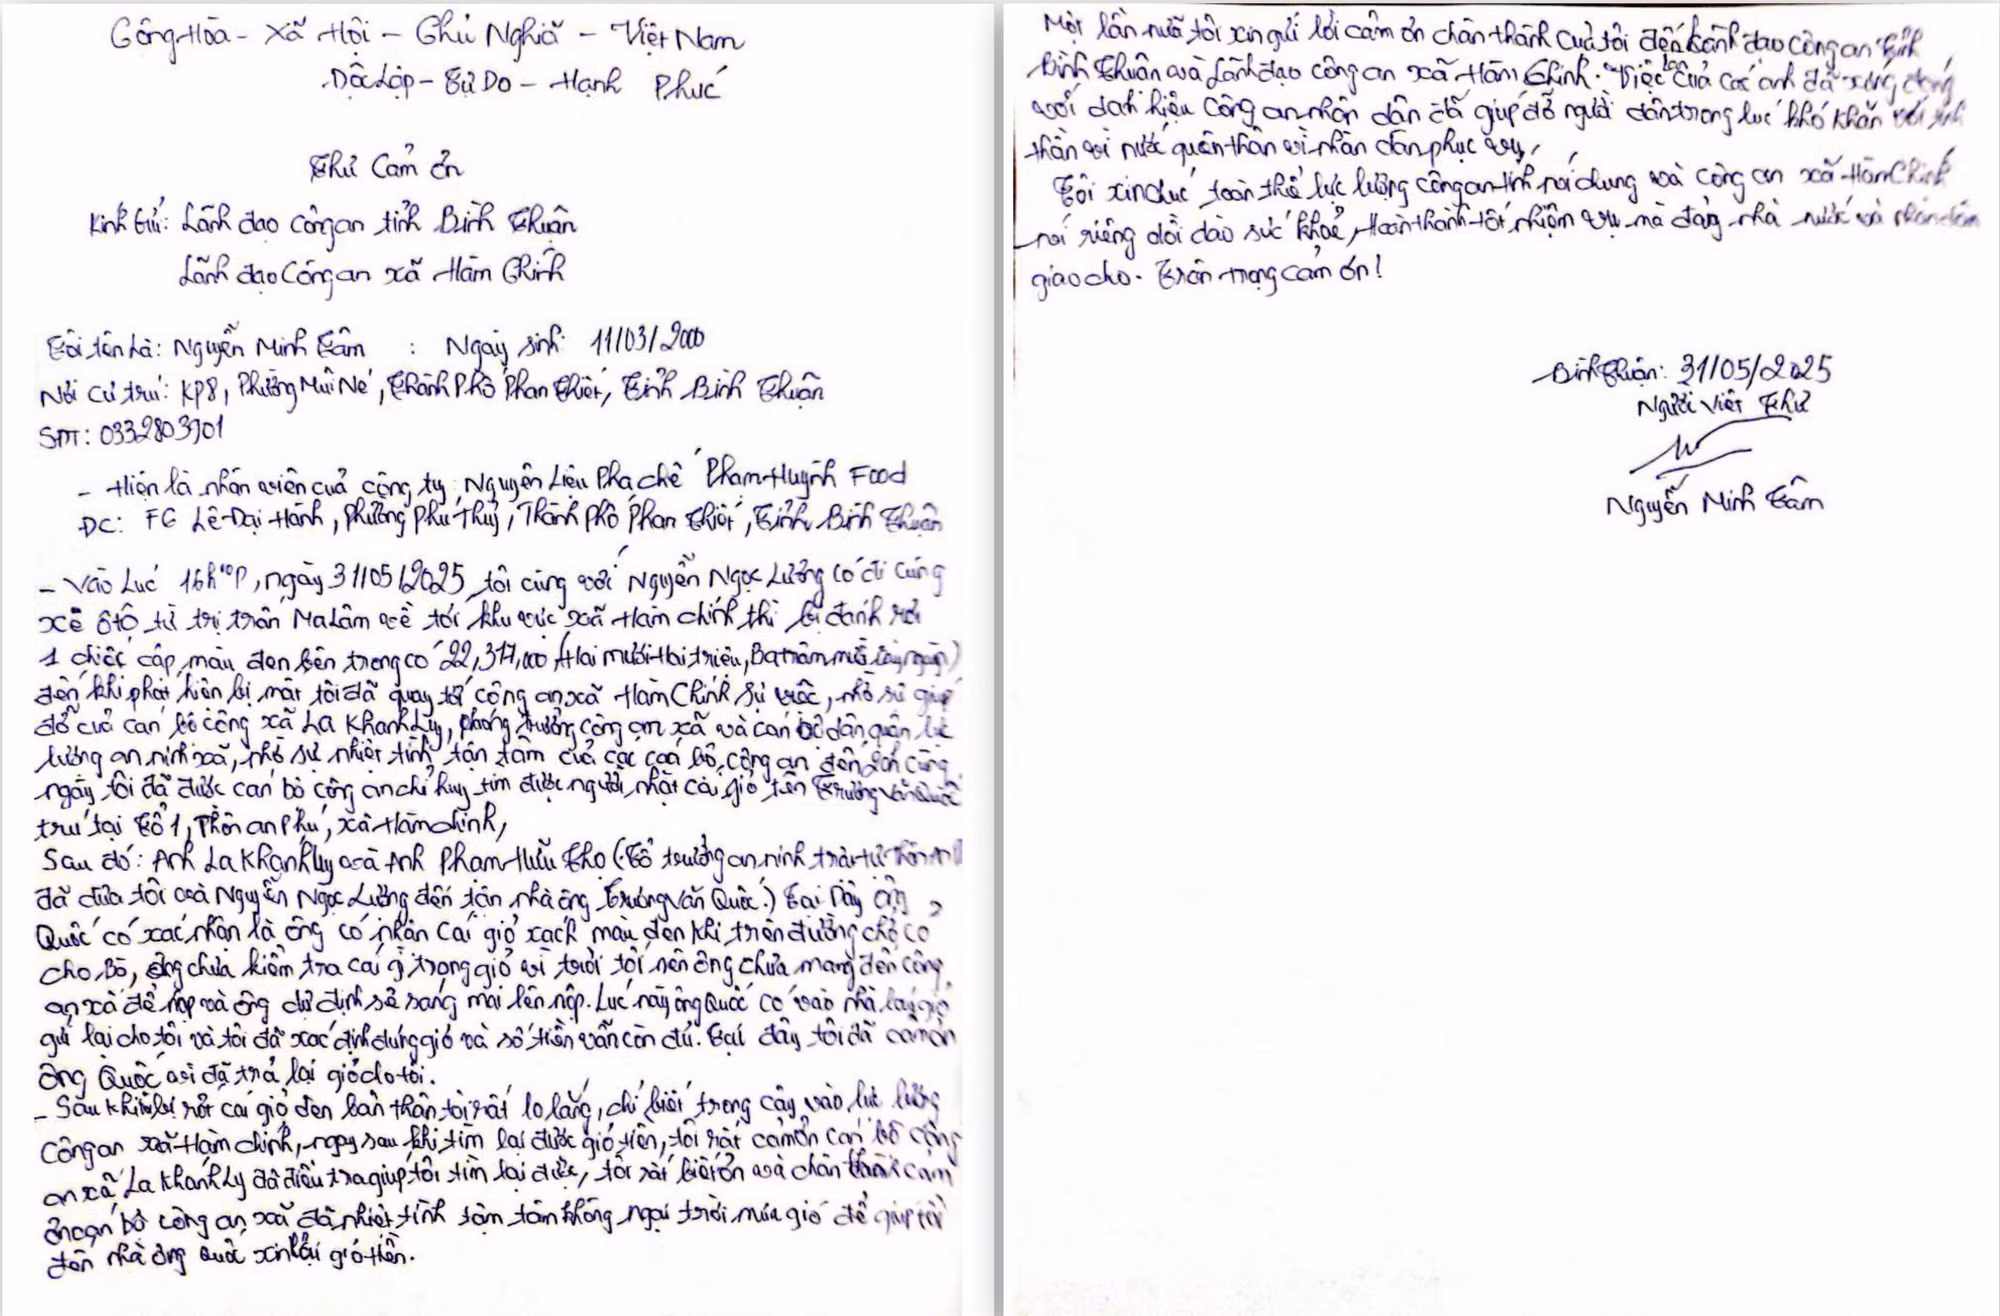 Cộng Hòa - Xã Hội - Chủ Nghiã - Việt Nam
Độc Lập - Tự Do - Hạnh Phúc
Thư Cảm ơn
Kính Gửi: Lãnh đạo Công an tỉnh Bình Thuận
Lãnh đạo Công an xã Hàm Chính
Tôi tên Là: Nguyễn Minh Tâm : Ngày sinh: 11/03/2000
Nơi Cư trú: KP8, Phường Mũi Né, Thành Phố Phan Thiết, Tỉnh Bình Thuận
SĐT: 0332803901
- Hiện là nhân viên của công ty Nguyên Liệu Pha chế Phạm Huỳnh Food
ĐC: FG Lê Đại Hành, phường Phú Thuỷ, Thành phố Phan Thiết, Tỉnh Bình Thuận
- Vào Lúc 16h10p, ngày 31/05/2025 tôi cùng với Nguyễn Ngọc Lưỡng có đi cùng
xe ôtô từ thị trấn Ma Lâm về tới khu vực xã Hàm chính thì bị đánh rơi
1 chiếc cặp màu đen bên trong có 22,317,000 (Hai mươi Hai triệu, Ba trăm mười bảy ngàn)
đến khi phát hiện bị mất tôi đã quay tới công an xã Hàm Chính sự việc, nhờ sự giúp
đỡ của cán bộ công xã La Khánh Ly, phó trưởng công an xã và cán bộ dân quân lực
lượng an ninh xã, nhờ sự nhiệt tình tận tâm của các cán bộ công an đến cùng
ngày tôi đã được cán bộ công an chỉ huy tìm được người nhặt cái giỏ tên Trương Văn Quốc
trú tại Tổ 1, Thôn an Phú, xã Hàm chính,
Sau đó: Anh La Khánh Ly và Anh Phạm Hữu Thọ (Tổ trưởng an ninh trật tự Thôn
đã đưa tôi và Nguyễn Ngọc Lưỡng đến tận nhà ông Trương Văn Quốc.) Tại Đây ông
Quốc có xác nhận là ông có nhặn cái giỏ xách màu đen khi trên đường chở cỏ
cho Bò, ông chưa kiểm tra cái gì trong giỏ vì trời tối nên ông chưa mang đến công
an xã để nộp và ông dự định sẽ sáng mai lên nộp. Lúc này ông Quốc có vào nhà lấy giỏ
gửi lại cho tôi và tôi đã xác định đúng giỏ và số tiền vẫn còn đủ. Tại đây tôi đã cảm ơn
ông Quốc vì đã trả lại giỏ cho tôi.
- Sau khi bị rớt cái giỏ đen bản thân tôi rất lo lắng, chỉ biết trông cậy vào lực lượng
Công an xã Hàm chính, ngay sau khi tìm lại được giỏ tiền, tôi rất cảm ơn cán bộ công
an xã La Khánh Ly đã điều tra giúp tôi tìm lại được, tôi rất biết ơn và chân thành cảm
ơn cán bộ công an xã đã nhiệt tình tận tâm không ngại trời mưa gió để giúp tôi
đến nhà ông Quốc xin lại giỏ tiền.
Một lần nữa tôi xin gửi lời cảm ơn chân thành của tôi đến Lãnh đạo Công an tỉnh
Bình Thuận và Lãnh đạo công an xã Hàm Chính. Việc của các anh đã xứng đáng
với danh hiệu Công an nhân dân đã giúp đỡ người dân trong lúc khó khăn với tinh
thần vì nước quên thân vì nhân dân phục vụ,
Tôi xin chúc toàn thể lực lượng công an tỉnh nói chung và công an xã Hàm Chính
nói riêng dồi dào sức khoẻ, Hoàn thành tốt nhiệm vụ mà đảng nhà nước và nhân dân
giao cho. Trân trọng cảm ơn!
Bình Thuận: 31/05/2025
Người Viết Thư
Nguyễn Minh Tâm